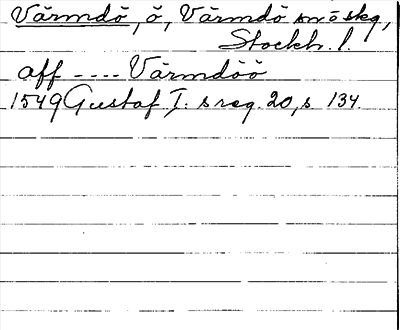 Värmdö, ö, Värmdö snö skg,
Stockh. l.
aff ---- Värmdöö
1549 Gustaf I:s reg. 20, s 134